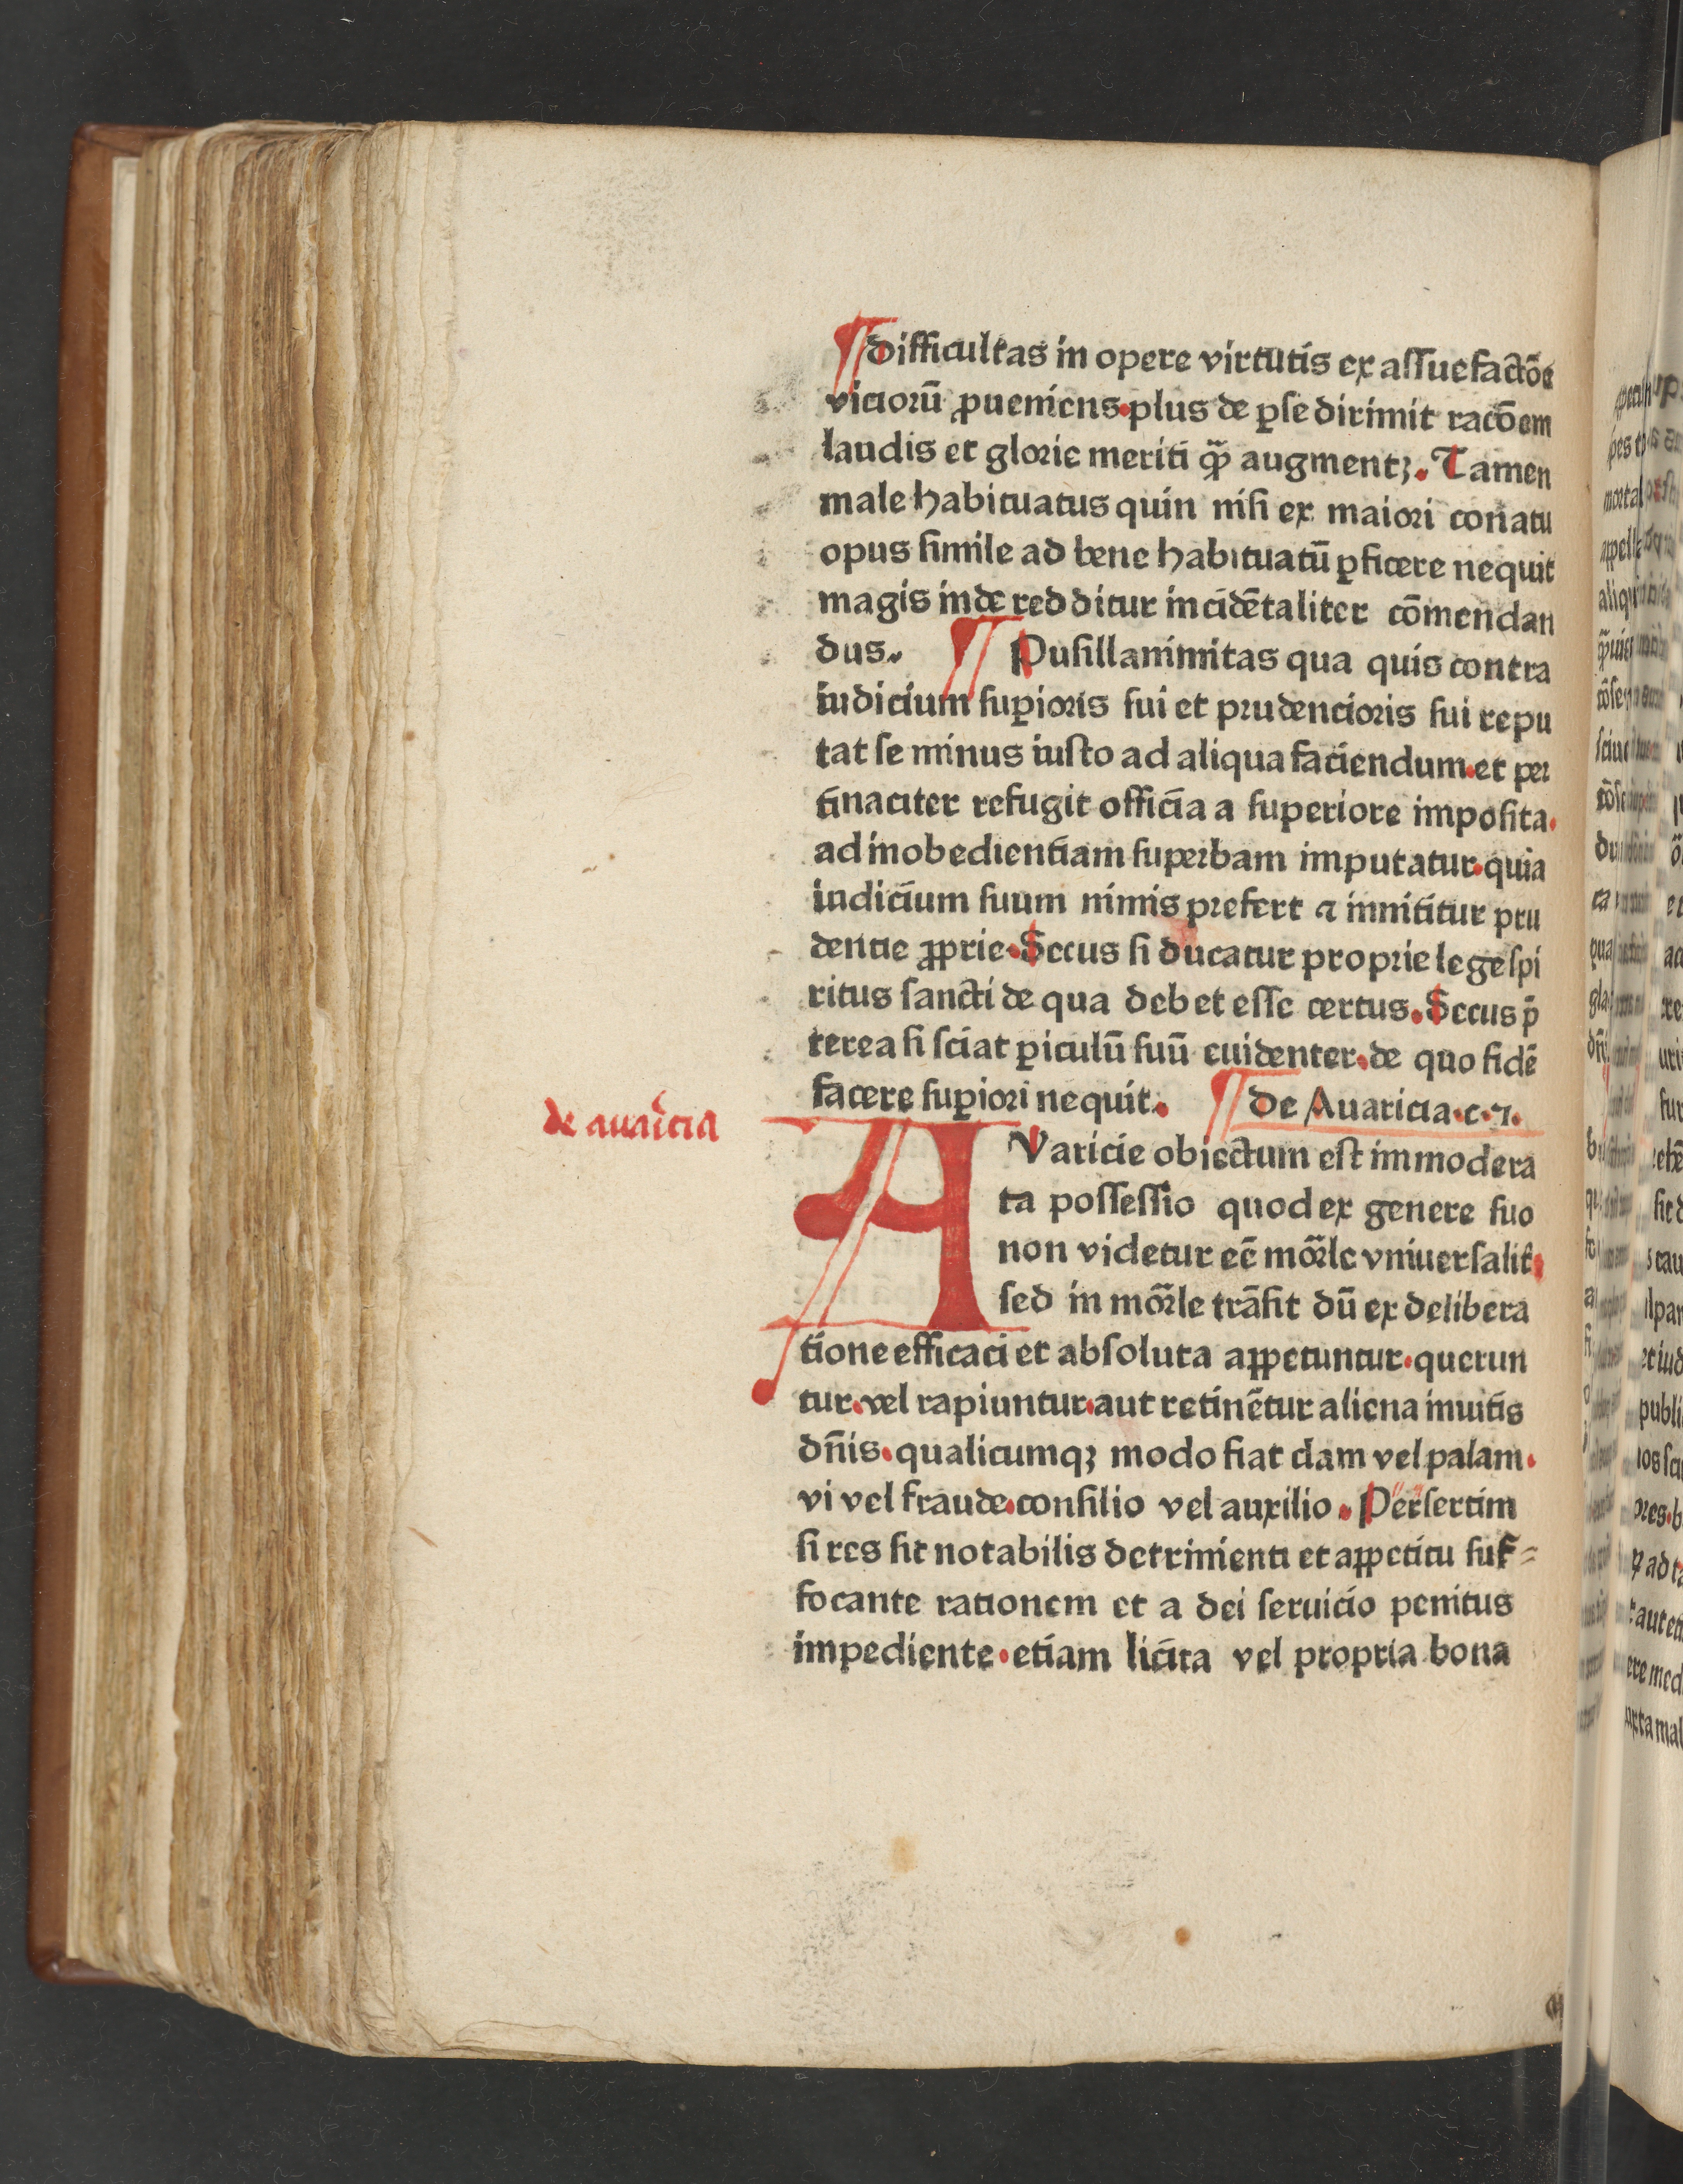 ¶ difficultas in opere virtutis ex assuefactōe
viciorū ꝓueniens. plus de ꝑse dirimit racōem
laudis et glorie meriti qꝫ̄ augmentꝫ. Tamen
male habituatus quin nisi ex maiori conatu
opus simile ad bene habituatū ꝑficere nequit
magis inde redditur incidētaliter cōmendan
dus. ¶ Pusillanimitas qua quis contra
iudicium suꝑioris sui et prudencioris sui repu
tat se minus iusto ad aliqua faciendum. et per
tinaciter refugit officia a superiore imposita.
ad inobedientiam superbam imputatur. quia
iudicium suum nimis prefert ⁊ innititur pru
dentie ꝓprie. Secus si ducatur proprie lege spi
ritus sancti de qua debet esse certus. Secus p̄
terea si sciat ꝑiculū suū euidenter. de quo fidē
facere suꝑiori nequit. ¶ De Auaricia. c. ⁊.
de auaricia
AVaricie obiectum est immodera
ta possessio quod ex genere suo
non videtur eē mōrle vniuersalit̄.
sed in mōrle trāsit dū ex delibera
tione efficaci et absoluta aꝓpetuntur. querun
tur. vel rapiuntur. aut retinētur aliena inuitis
dn̄is. qualicumqꝫ modo fiat clam vel palam.
vi vel fraude. consilio vel auxilio. Persertim
si res sit notabilis detrimenti et appetitu suf⸗
focante rationem et a dei seruicio penitus
impediente. etiam licita vel propria bona